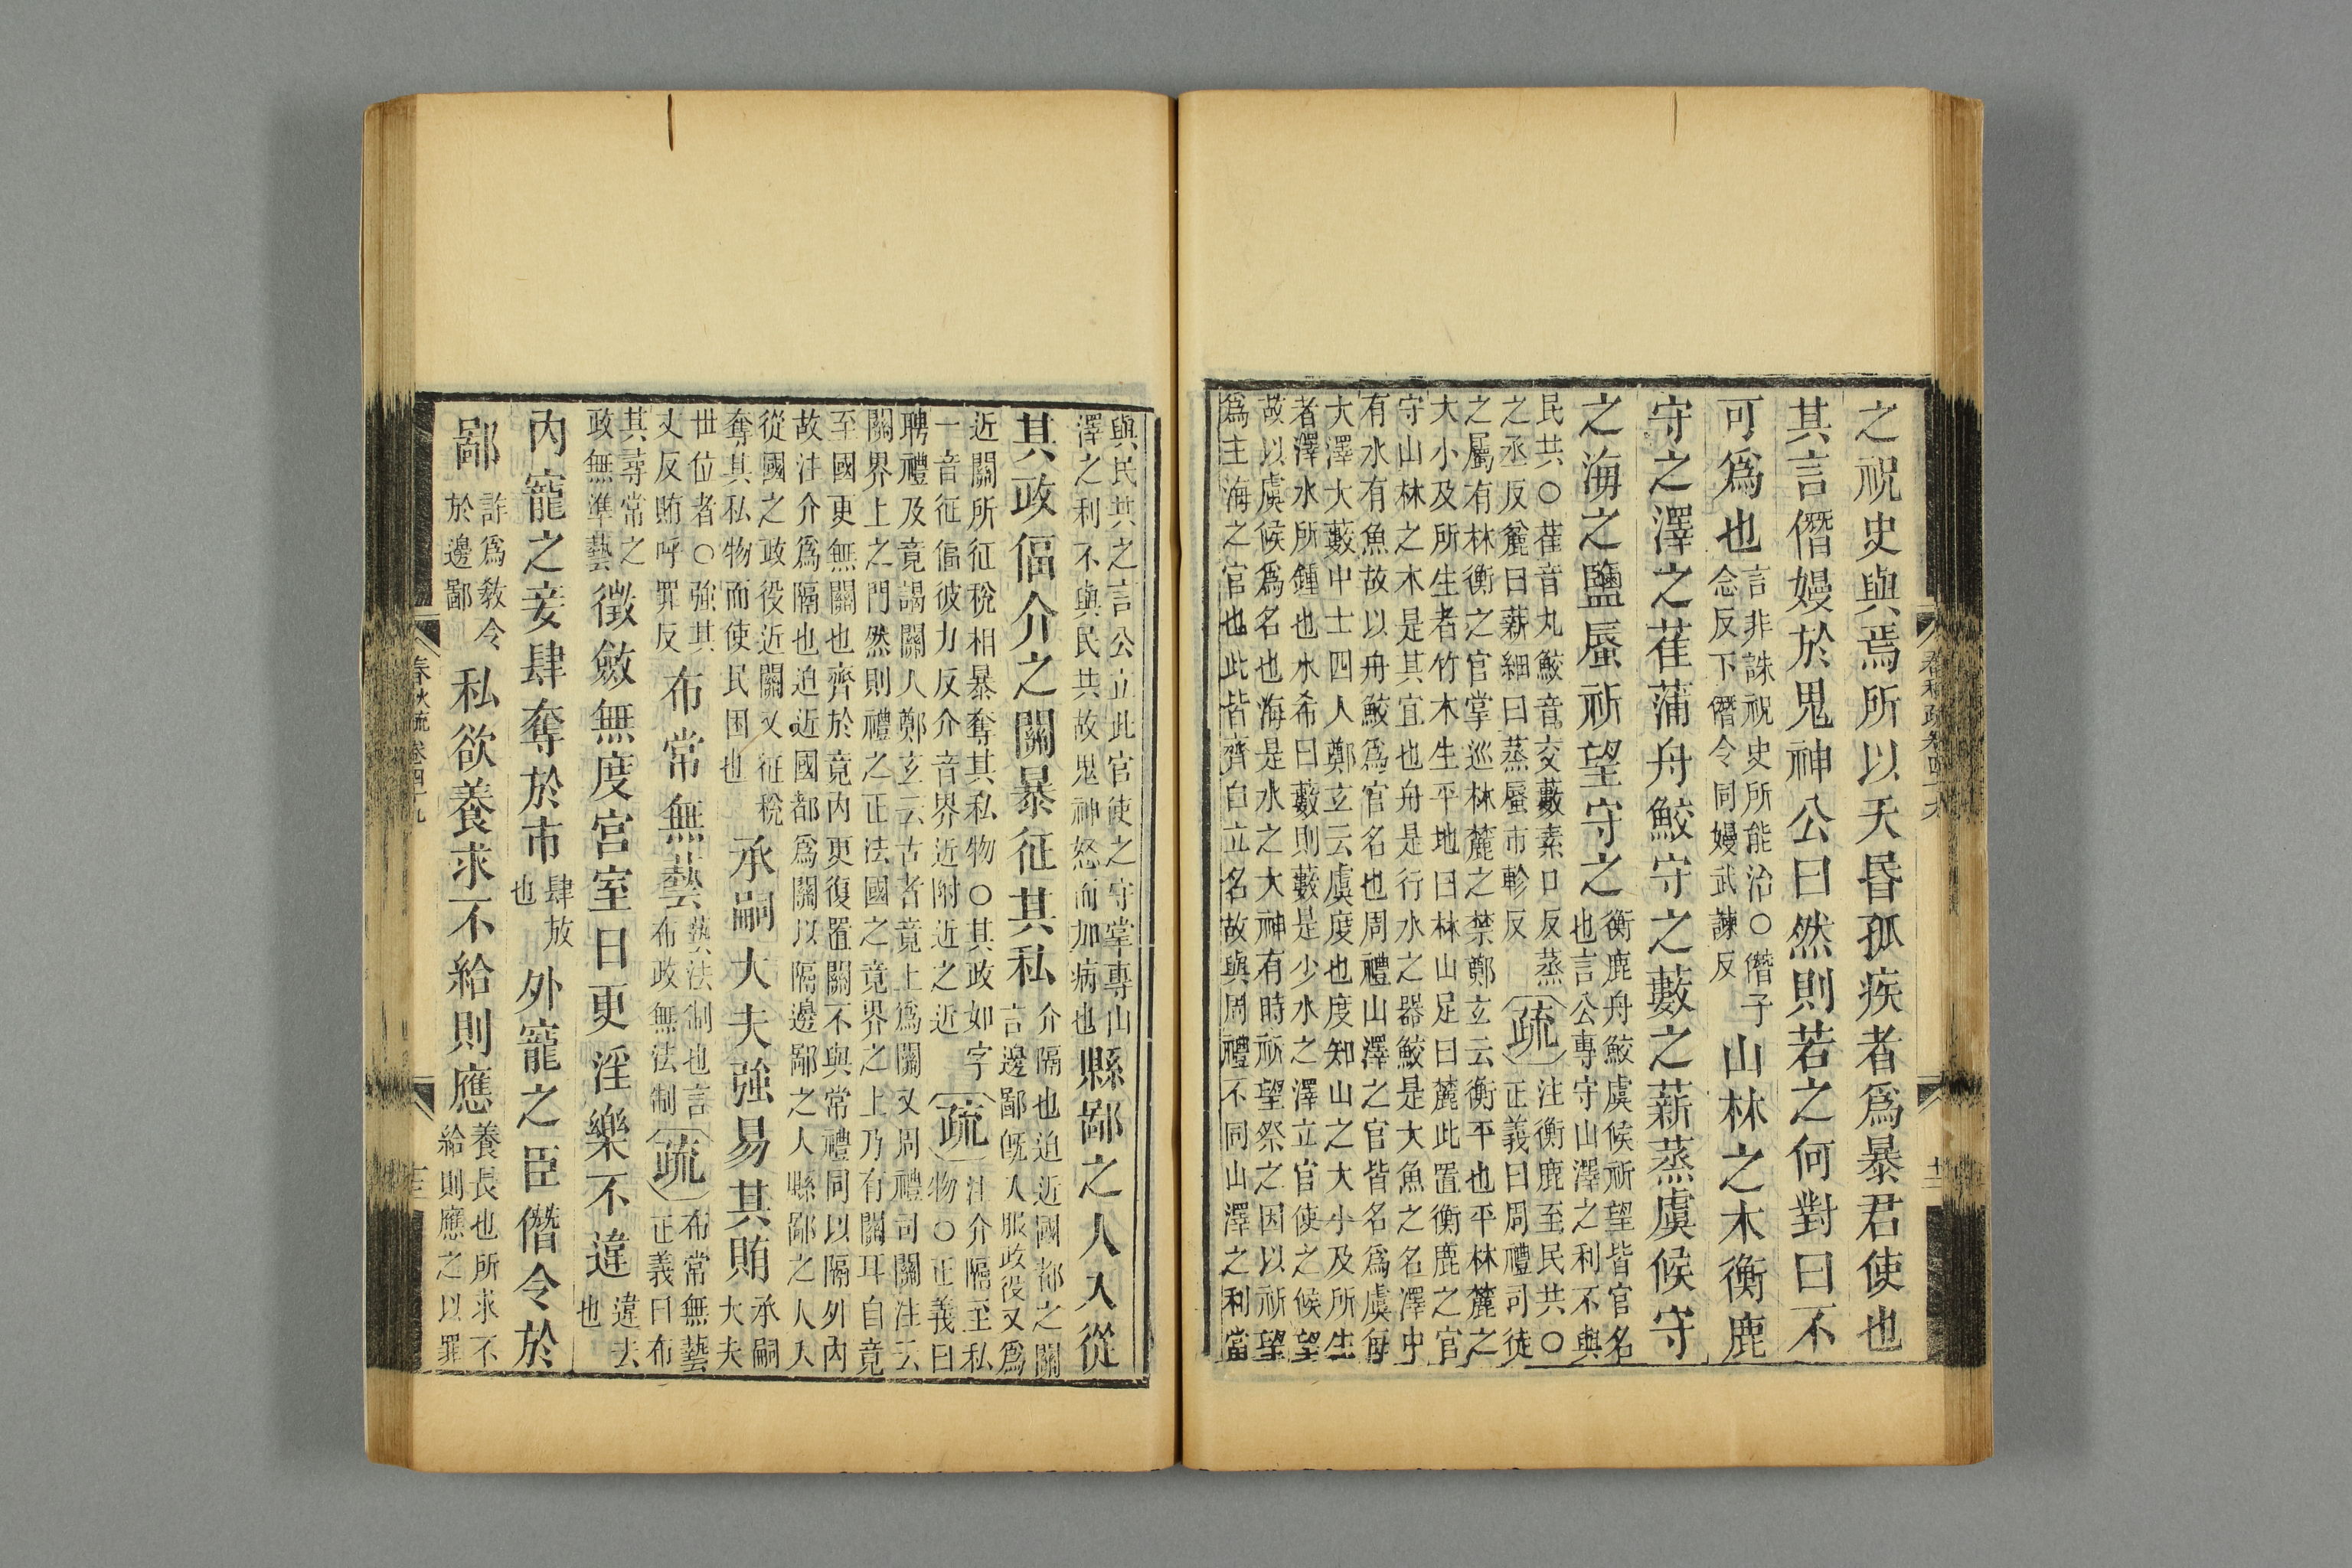 之祝史與焉所以夭昬孤疾者爲暴君使也
其言僭嫚於鬼神公曰然則若之何對曰不
可爲也言非誅祝史所能治○僭子
念反下僭令同嫚武諫反山林之木衡鹿
守之澤之萑蒲舟鮫守之藪之薪蒸虞候守
之海之鹽蜃祈望守之衡鹿舟鮫虞候祈望皆官名
也言公專守山澤之利不與
民共○萑音丸鮫音交藪素口反蒸
之丞反麄曰薪細曰蒸蜃市軫反疏注衡鹿至民共○
正義曰周禮司徒
之屬有林衡之官掌巡林麓之禁鄭玄云衡平也平林麓之
大小及所生者竹木生平地曰林山足曰麓此置衡鹿之官
守山林之木是其宜也舟是行水之器鮫是大魚之名澤中
有水有魚故以舟鮫爲官名也周禮山澤之官皆名爲虞每
大澤大藪中士四人鄭玄云虞度也度知山之大小及所生
者澤水所鍾也水希曰藪則藪是少水之澤立官使之候望
故以虞候爲名也海是水之大神有時祈望祭之因以祈望
爲主海之官也此皆齊自立名故與周禮不同山澤之利當
與民共之言公立此官使之守掌專山
澤之利不與民共故鬼神怒而加病也縣鄙之人入從
其政偪介之關暴征其私介隔也迫近國都之關
言邊鄙旣入服政役又爲
近關所征稅相暴奪其私物○其政如字
一音征偪彼力反介音界近附近之近疏注介隔至私
物○正義曰
聘禮及竟謁關人鄭玄云古者竟上爲關又周禮司關注云
關界上之門然則禮之正法國之竟界之上乃有關耳自竟
至國更無關也齊於竟內更復置關不與常禮同以隔外內
故注介爲隔也迫近國都爲關以隔邊鄙之人縣鄙之人入
從國之政役近關又征稅
奪其私物而使民困也承嗣大夫強易其賄承嗣
大夫
世位者○強其
丈反賄呼罪反布常無藝藝法制也言
布政無法制疏布常無藝
正義曰布
其尋常之
政無準藝徵斂無度宮室日更淫樂不違違去
也
內寵之妾肆奪於市肆放
也外寵之臣僭令於
鄙詐爲敎令
於邊鄙私欲養求不給則應養長也所求不
給則應之以罪
春秋疏卷四十九
十三